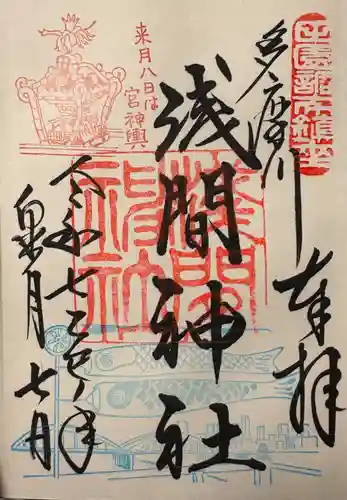 田園調布鎮座
多摩川
奉拝
浅間神社
浅間
神社
来月八日は
宮神輿
令和七乙巳年
皐月七日